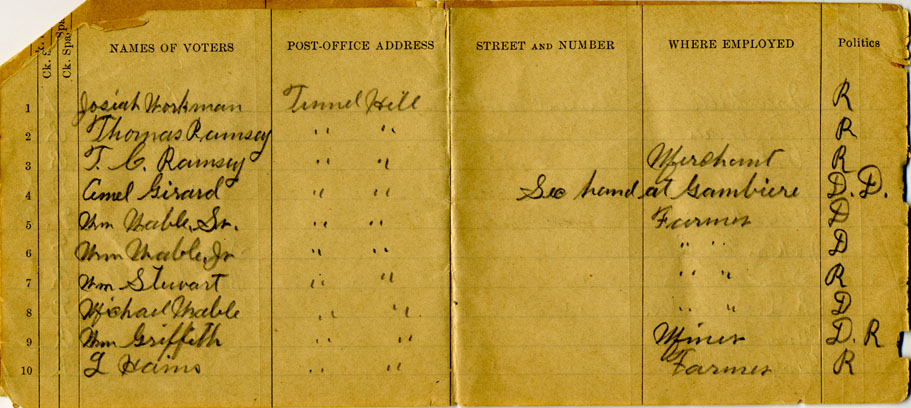 Ck. Spa Ck. Spa NAMES OF VOTERS POST-OFFICE ADDRESS STREET AND NUMBER WHERE EMPLOYED Politics
1 Josiah Workman Tunnel Hill R
2 Thomas Ramsey " " R
3 T. C. Ramsey " " Merchant R
4 Amel Girard " " Sec hand at Gambiere D. D.
5 Wm Mable, Sr. " " Farmer D
6 Wm Mable, Jr " " " " D
7 Wm Stewart " " " " R
8 Michael Mable " " " " D
9 Wm Griffith " " Miner D. R
10 L Hains " " Farmer R